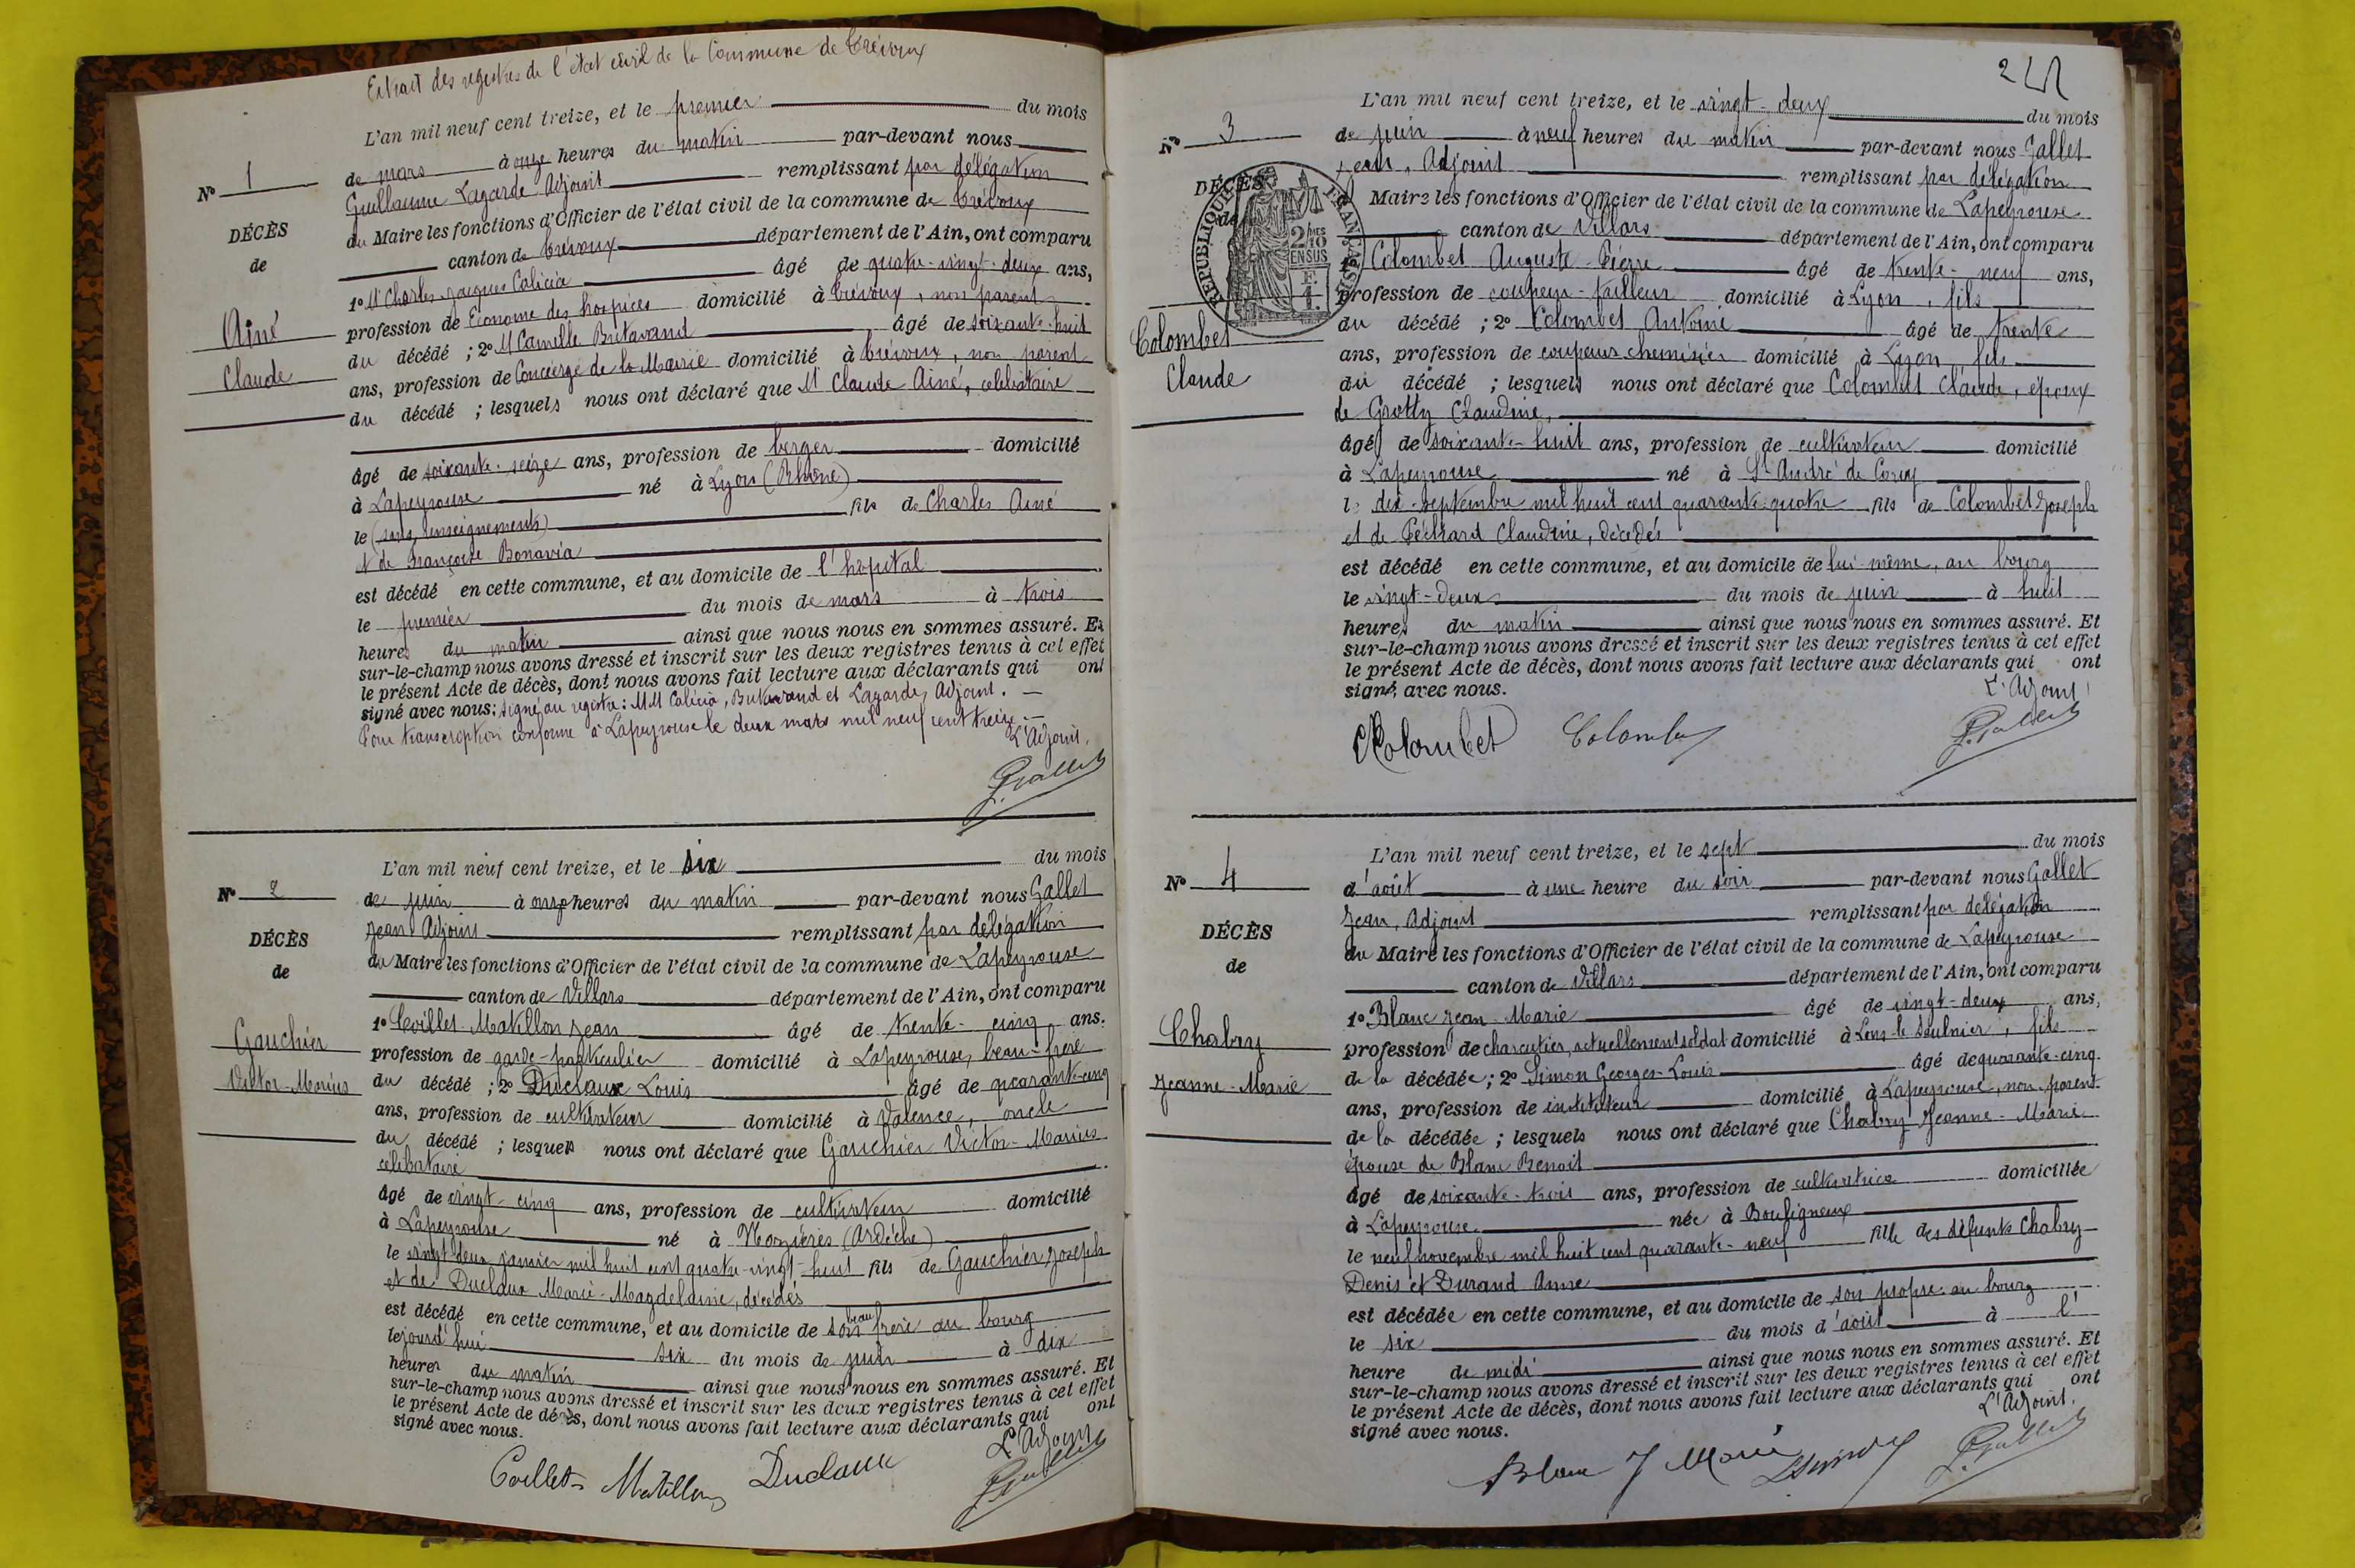 Extrait des registres de l'état civil de la Commune de Trévoux
L'an mil neuf cent treize, et le premier du mois
de mars à onze heures du matin par-devant nous
Guillaume Lagarde Adjoint remplissant par délégation
du Maire les fonctions d'Officier de l'état civil de la commune de Trévoux
canton de Trévoux département de l'Ain, ont comparu
1º Mr Charles Jacques Calicia âgé de quatre-vingt-deux ans,
profession de Econome des hospices domicilié à Trévoux, non parent
du décédé ; 2º M Camille âgé de soixante-huit
ans, profession de Concierge de la Mairie domicilié à Trévoux, non parent
du décédé ; lesquels nous ont déclaré que Mr Claude Ainé, célibataire
âgé de soixante-seize ans, profession de berger domicilié
à Lapeyrouse né à Lyon (Rhône)
le (sans renseignements) fils de Charles Ainé
et de Françoise Bonavia
est décédé en cette commune, et au domicile de l'hôpital
le premier du mois de mars à trois
heures du matin ainsi que nous nous en sommes assuré. Et
sur-le-champ nous avons dressé et inscrit sur les deux registres tenus à cet effet
le présent Acte de décès, dont nous avons fait lecture aux déclarants qui ont
signé avec nous: signé au registre: MM Calicia, et Lagarde, Adjoint.
Pour transcription conforme à Lapeyrouse le deux mars mil neuf cent treize.
L'Adjoint,
J. Gallet
Nº 1
DÉCÈS
de
Ainé
Claude
L'an mil neuf cent treize, et le six du mois
de juin à onze heures du matin par-devant nous Gallet
Jean Adjoint remplissant par délégation
du Maire les fonctions d'Officier de l'état civil de la commune de Lapeyrouse
canton de Villars département de l'Ain, ont comparu
1º Coillet-Matillon Jean âgé de trente-cinq ans.
profession de garde-particulier domicilié à Lapeyrouse, beau-frère
du décédé ; 2º Duclaux Louis âgé de quarante-cinq
ans, profession de cultivateur domicilié à Valence, oncle
du décédé ; lesquels nous ont déclaré que Gauchier Victor-Marius
célibataire
âgé de vingt-cinq ans, profession de cultivateur domicilié
à Lapeyrouse né à Nozières (Ardèche)
le vingt-deux janvier mil huit cent quatre-vingt-huit fils de Gauchier Joseph
et de Duclaux Marie-Magdelaine, décédés
est décédé en cette commune, et au domicile de son beau frère au bourg
lejourd'hui six du mois de juin à dix
heures du matin ainsi que nous nous en sommes assuré. Et
sur-le-champ nous avons dressé et inscrit sur les deux registres tenus à cet effet
le présent Acte de décès, dont nous avons fait lecture aux déclarants qui ont
signé avec nous.
L'Adjoint
Coillet-Matillon Duclaux J. Gallet
Nº 2
DÉCÈS
de
Gauchier
Victor-Marius
2
L'an mil neuf cent treize, et le vingt-deux du mois
de juin à neuf heures du matin par-devant nous Gallet
Jean, Adjoint remplissant par délégation
Maire les fonctions d'Officier de l'état civil de la commune de Lapeyrouse
canton de Villars département de l'Ain, ont comparu
1º Colombet Auguste-Pierre âgé de trente-neuf ans,
profession de coupeur-tailleur domicilié à Lyon, fils
du décédé ; 2º Colombet Antoine âgé de trente
ans, profession de coupeur chemisier domicilié à Lyon, fils
du décédé ; lesquels nous ont déclaré que Colombet Claude, époux
de Grotty Claudine,
âgé de soixante-huit ans, profession de cultivateur domicilié
à Lapeyrouse né à St André de Corcy
le dix-septembre mil huit cent quarante-quatre fils de Colombet Joseph
et de Péchard Claudine, décédés
est décédé en cette commune, et au domicile de lui-même, au bourg
le vingt-deux du mois de juin à huit
heures du matin ainsi que nous nous en sommes assuré. Et
sur-le-champ nous avons dressé et inscrit sur les deux registres tenus à cet effet
le présent Acte de décès, dont nous avons fait lecture aux déclarants qui ont
signé avec nous.
L'Adjoint
Colombet Colombet J. Gallet
Nº 3
DÉCÈS
de
RÉPUBLIQUE FRANÇAISE
2 10
EN SUS
Colombet
Claude
L'an mil neuf cent treize, et le sept du mois
d'août à une heure du soir par-devant nous Gallet
Jean, Adjoint remplissant par délégation
du Maire les fonctions d'Officier de l'état civil de la commune de Lapeyrouse
canton de Villars département de l'Ain, ont comparu
1º Blanc Jean-Marie âgé de vingt-deux ans,
profession de charcutier, actuellement soldat domicilié à Lons-le-Saulnier, fils
de la décédée ; 2º Simon Georges-Louis âgé de quarante-cinq
ans, profession de instituteur domicilié à Lapeyrouse, non-parent
de la décédée ; lesquels nous ont déclaré que Chabry Jeanne-Marie
épouse de Blanc Benoit
âgé de soixante-trois ans, profession de cultivatrice domiciliée
à Lapeyrouse née à Bouligneux
le neuf novembre mil huit cent quarante-neuf fille des défunts Chabry
Denis et Durand Anne
est décédée en cette commune, et au domicile de son propre au bourg
le six du mois d'août à l'
heure de midi ainsi que nous nous en sommes assuré. Et
sur-le-champ nous avons dressé et inscrit sur les deux registres tenus à cet effet
le présent Acte de décès, dont nous avons fait lecture aux déclarants qui ont
signé avec nous.
L'Adjoint.
Blanc J Marie LSimon J. Gallet
Nº 4
DÉCÈS
de
Chabry
Jeanne-Marie